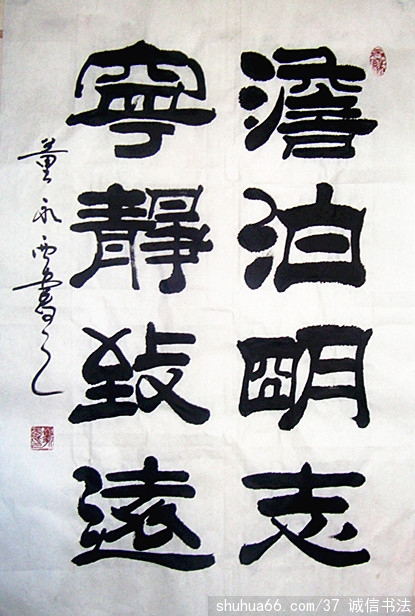 澹泊明志
寧靜致遠
董永西書之
shuhua66.com/37 诚信书法